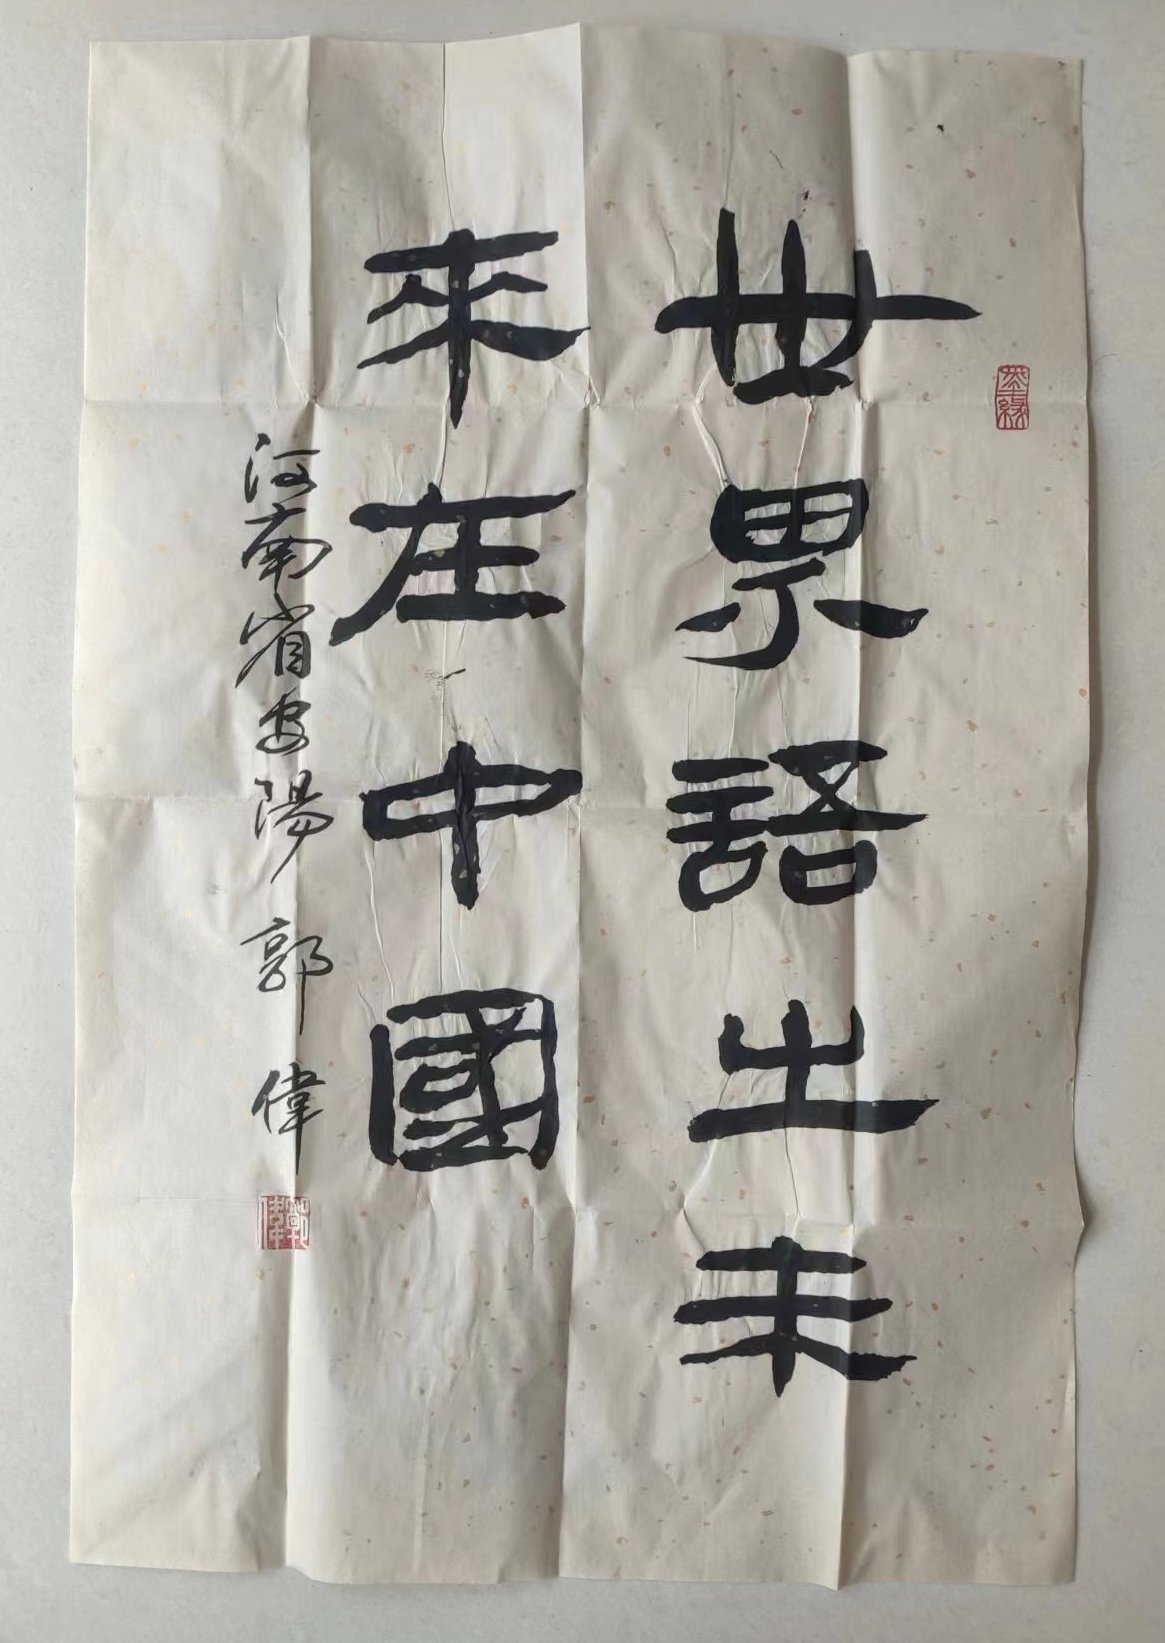 世界語之未
來在中國
河南省安陽郭偉
郭偉